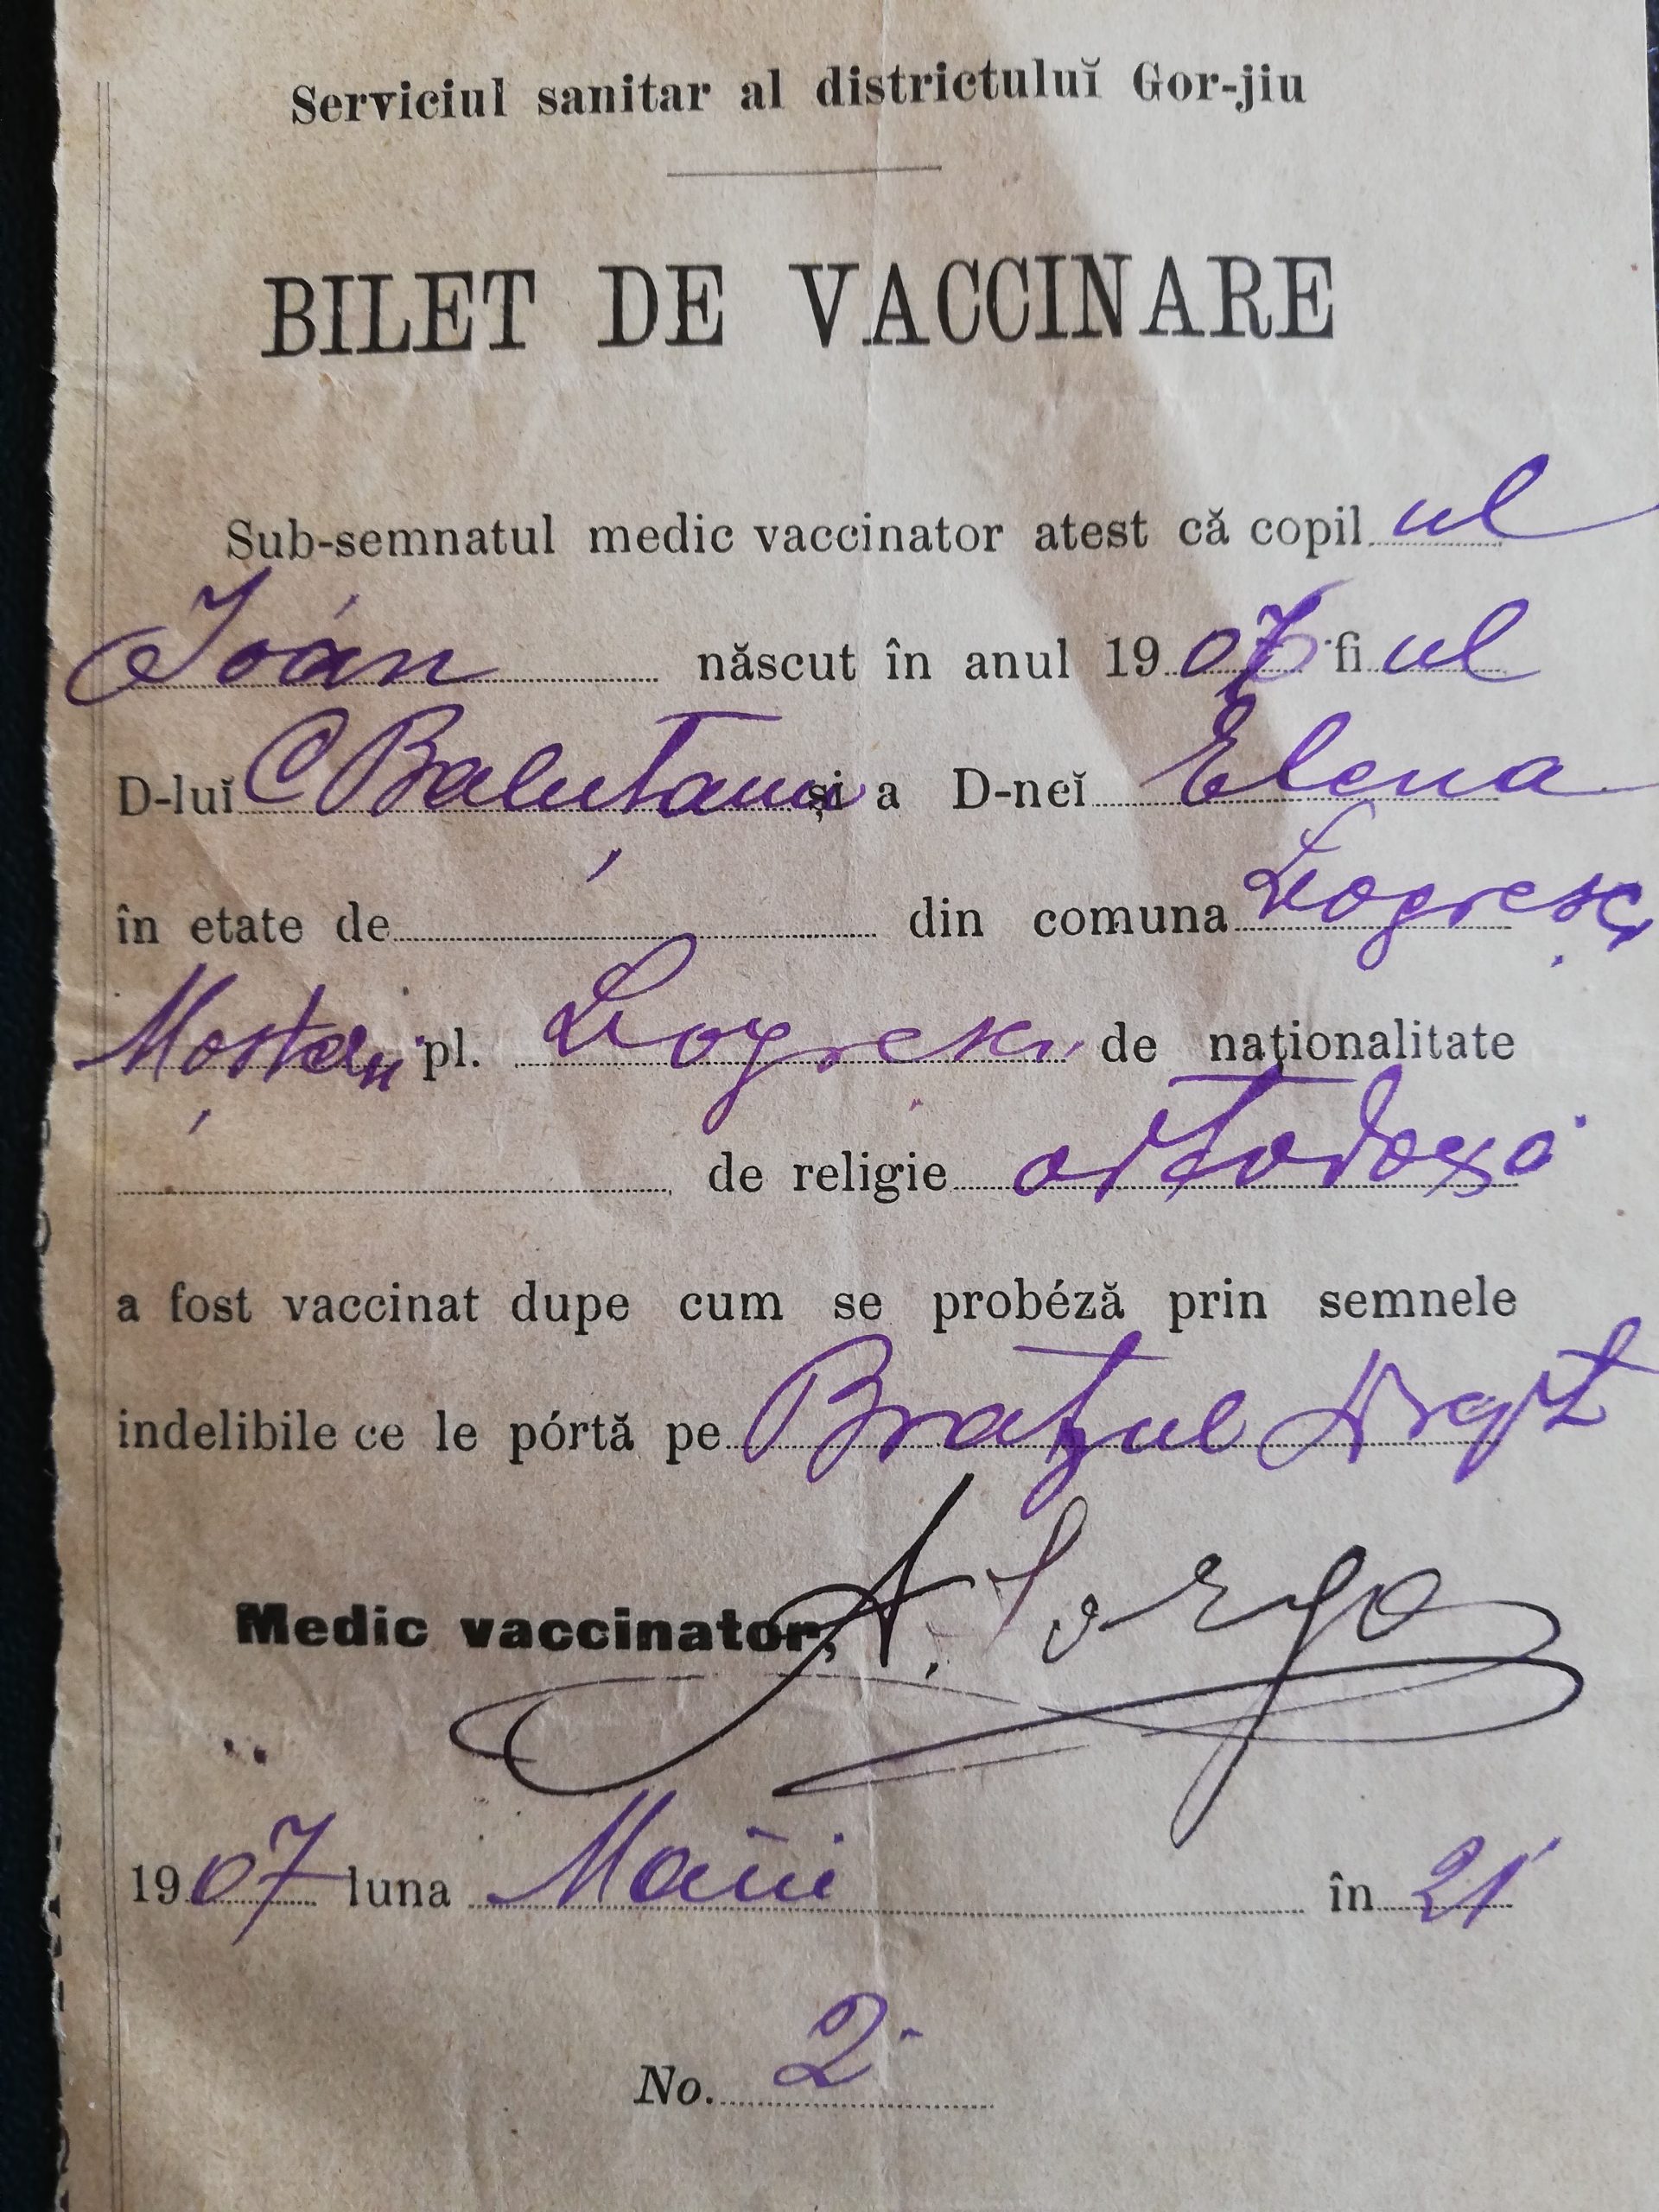 Serviciul sanitar al districtuluĭ Gor-jiu
BILET DE VACCINARE
Sub-semnatul medic vaccinator atest că copil ul
Ioán născut în anul 1907 fi ul
D-luĭ C Baluțanu și a D-neĭ Elena
în etate de din comuna Logresci
Moșteni pl. Logresci de naționalitate
de religie ortodoxă
a fost vaccinat dupe cum se probéză prin semnele
indelibile ce le pórtă pe Brațul drept
Medic vaccinator, A.
1907 luna Maiu în 21
No. 2